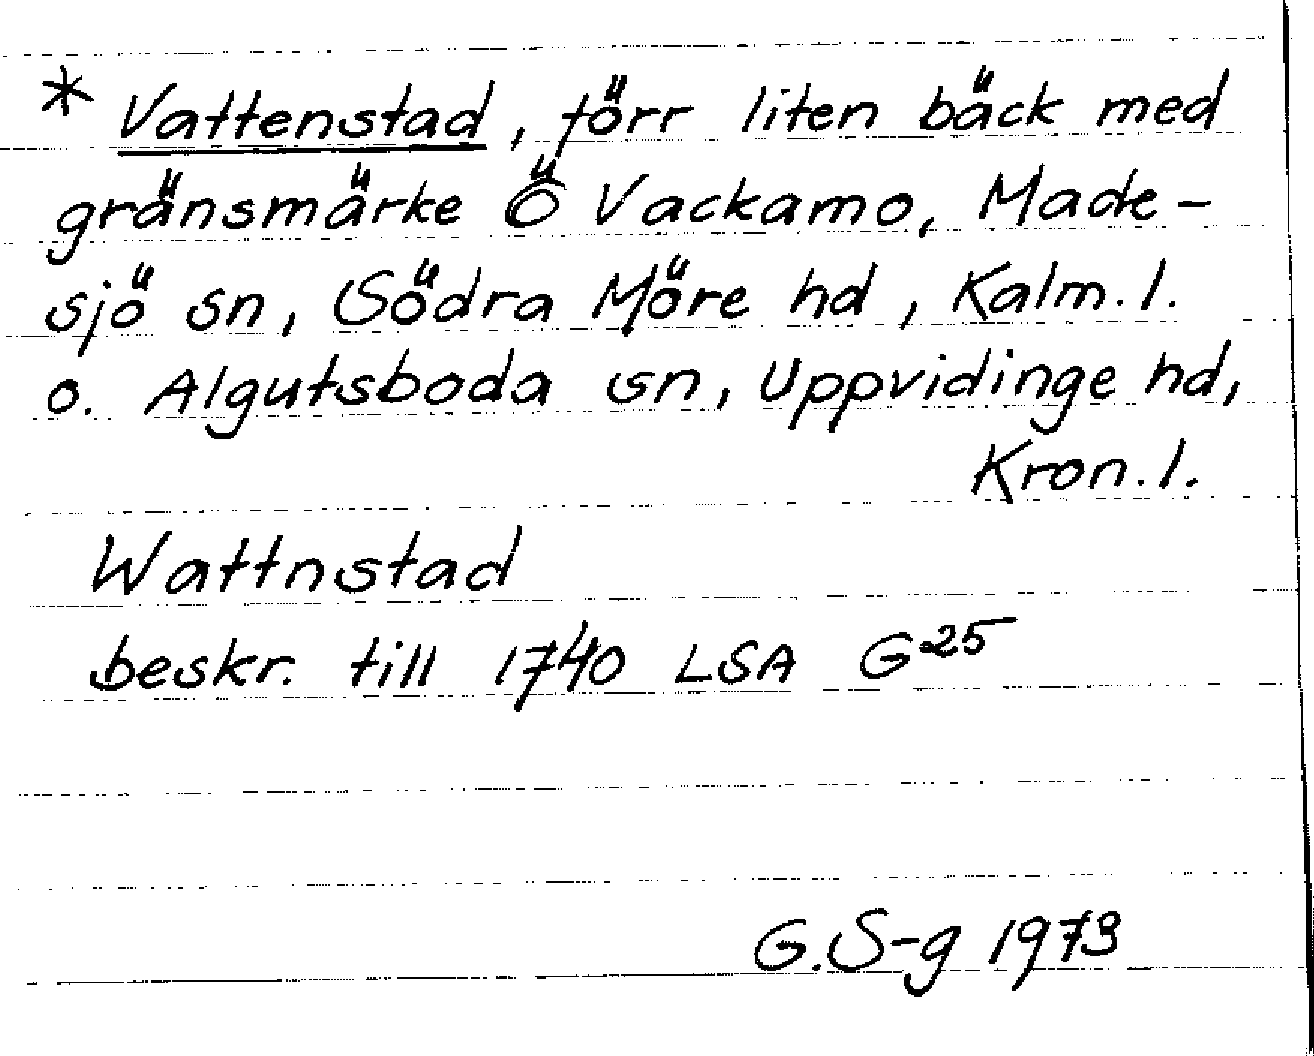 * Vattenstad, förr liten bäck med
gränsmärke Ö Vackamo, Made-
sjö sn, Södra Möre hd, Kalm. l.
o. Algutsboda sn, Uppvidinge hd,
Kron. l.
Wattnstad
beskr. till 1740 LSA G25
G. S-g 1973